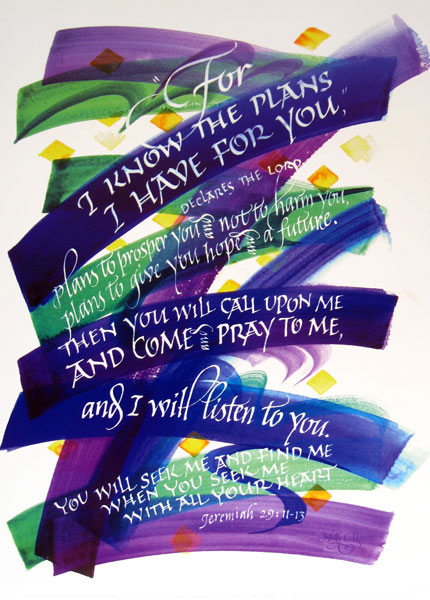 "For
I KNOW THE PLANS
I HAVE FOR YOU,"
DECLARES THE LORD,
plans to prosper you and not to harm you,
plans to give you hope and a future.
THEN YOU WILL CALL UPON ME
AND COME and PRAY TO ME,
and I will listen to you.
YOU WILL SEEK ME AND FIND ME
WHEN YOU SEEK ME
WITH ALL YOUR HEART
Jeremiah 29:11-13